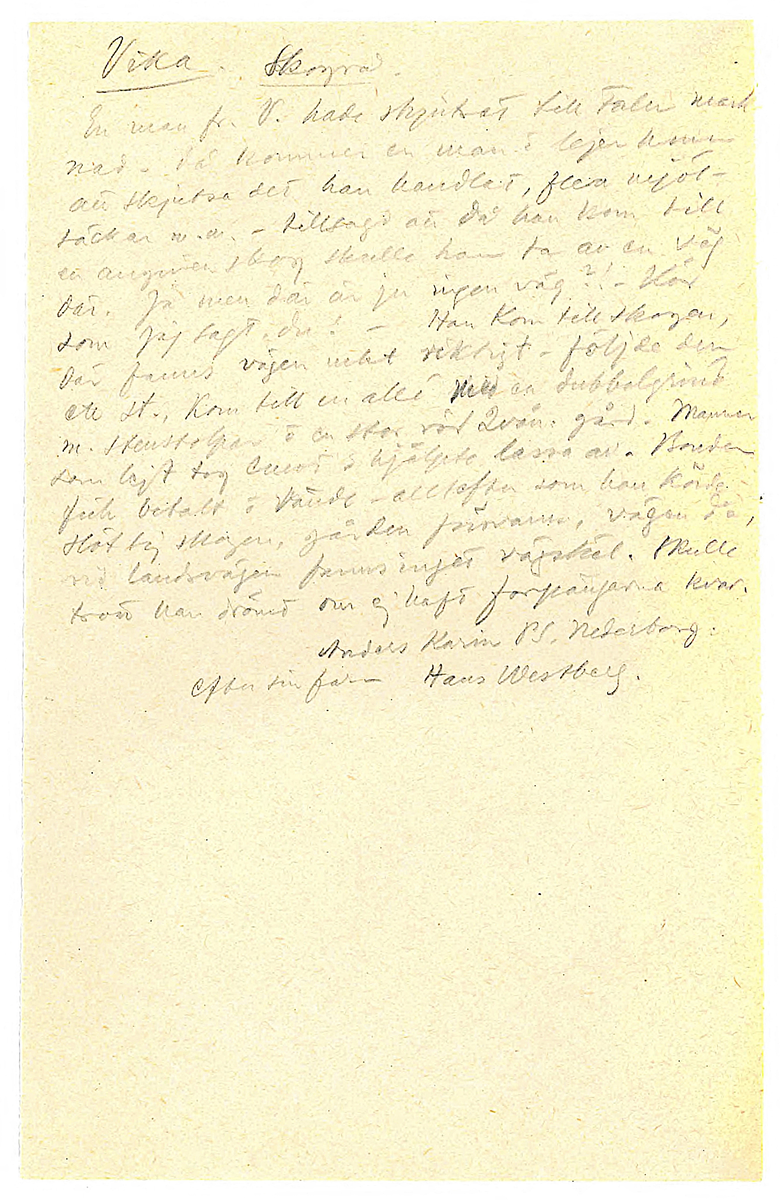 Vika. Skogrå.
En man fr. V. hade skjutsat till Falu mark
nad. Då kommer en man o lejer honom
att skjutsa det han handlat, flera mjöl-
säckar m.m. – tillsagd att då han kom till
en angiven skog skulle han ta av en väg
där. Ja men där är ju ingen väg?! – Kör
som jag sagt du! – Han kom till skogen,
där fanns vägen mkt riktigt – följde den
ett st., kom till en allé med en dubbelgrind
m. stenstolpar o en stor röd 2vån. gård. Mannen
som lejt tog emot o hjälpte lassa av. Bonden
fick betalt o vände – alltefter som han körde
slöt sig skogen, gården försvann, vägen så,
vid landsvägen fanns inget vägskäl. Skulle
trott han drömt om ej haft forpängarna kvar.
Anders Karin PS. Nederborg.
efter sin far Hans Westberg.